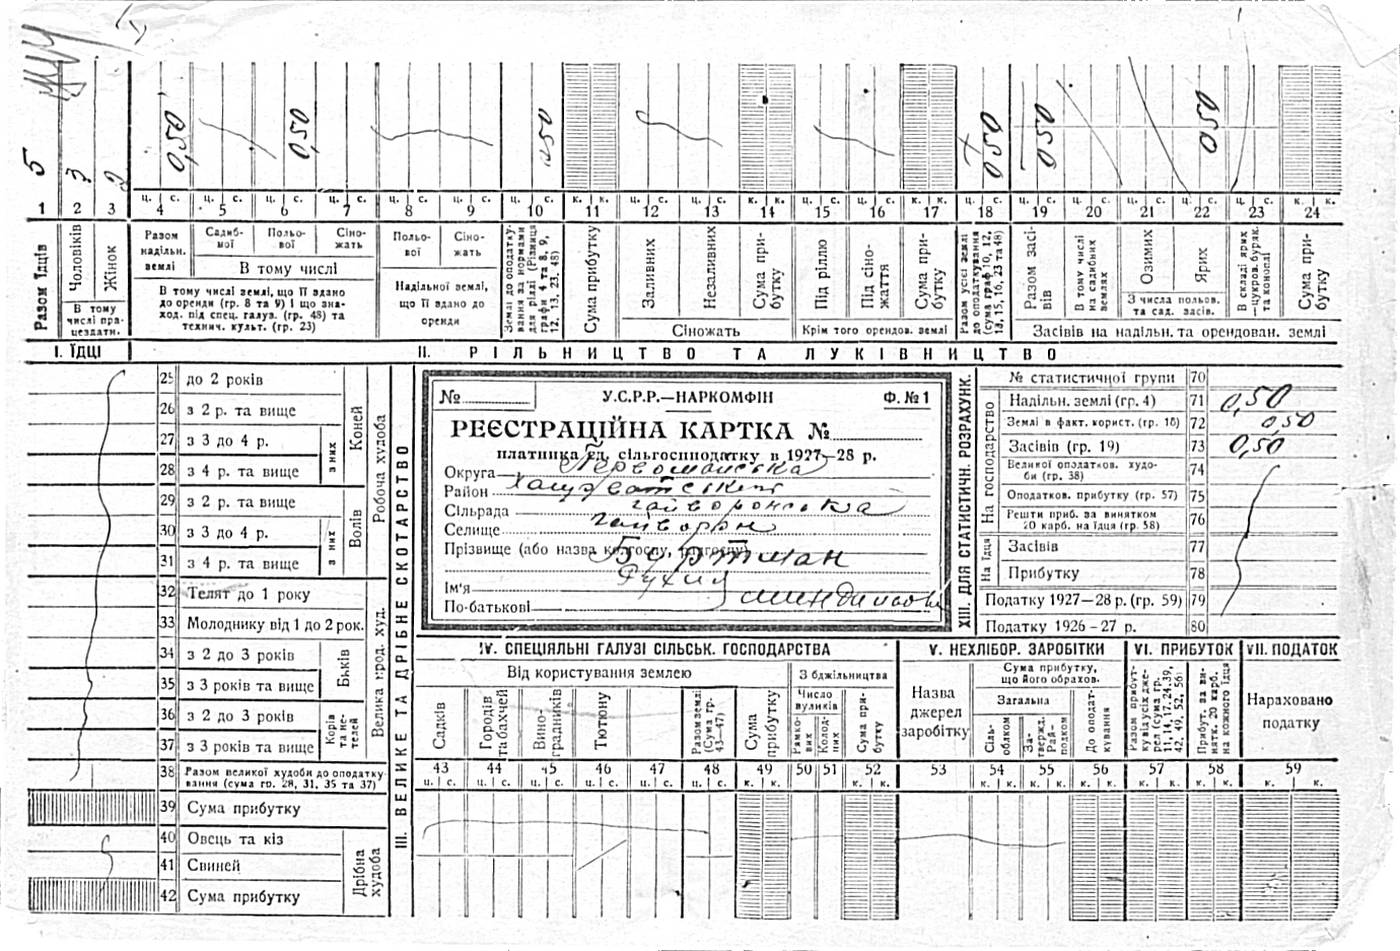 5
3
2
0,50
0,50
0,50
0,50
0,50
0,50
ц. с. ц. с. ц. с. ц. с. ц. с. ц. с. ц. с. к. к. ц. с. ц. с. к. к. ц. с. ц. с. к. к. ц. с. ц. с. ц. с. ц. с. ц. с. ц. с. к. к.
1 2 3 4 5 6 7 8 9 10 11 12 13 14 15 16 17 18 19 20 21 22 23 24
Разом їдців
Чоловіків
Жінок
В тому
числі пра-
цездатн.
Разом
надільн.
землі
Садиб-
ної
Польо-
вої
Сіно-
жать
В тому числі
В тому числі землі, що її вдано
до оренди (гр. 8 та 9) і що зна-
ход. під спец. галуз. (гр. 48) та
технич. культ. (гр. 23)
Польо-
вої
Сіно-
жать
Надільної землі,
що її вдано до
оренди
Землі до оподатку-
вання за нормами
для ріллі (Різниця
графи 4 та 8, 9,
12, 13, 23, 48)
Сума прибутку
Заливних
Незаливних
Сума при-
бутку
Сіножать
Під ріллю
Під сіно-
жаття
Сума при-
бутку
Крім того орендов. землі
Разом усієї землі
до оподаткування
(сума граф 10, 12,
13, 15, 16, 23 та 48)
Разом засі-
вів
В тому числі
на садибних
землях
Озимих
Ярих
З числа польов.
та сад. засів.
В складі ярих
—цукров. буряк.
та коноплі
Сума при-
бутку
Засівів на надільн. та орендован. землі
I. ЇДЦІ
II. РІЛЬНИЦТВО ТА ЛУКІВНИЦТВО
25 до 2 років
26 з 2 р. та вище
27 з 3 до 4 р.
28 з 4 р. та вище
з них
Коней
29 з 2 р. та вище
30 з 3 до 4 р.
31 з 4 р. та вище
з них
Волів
Робоча худоба
32 Телят до 1 року
33 Молоднику від 1 до 2 рок.
34 з 2 до 3 років
35 з 3 років та вище
Биків
36 з 2 до 3 років
37 з 3 років та вище
Корів
та не-
телей
Велика прод. худ.
38 Разом великої худоби до оподатку-
вання (сума гр. 28, 31, 35 та 37)
39 Сума прибутку
40 Овець та кіз
41 Свиней
42 Сума прибутку
Дрібна
худоба
III. ВЕЛИКЕ ТА ДРІБНЕ СКОТАРСТВО
№
У.С.Р.Р.—НАРКОМФІН
Ф. № 1
РЕЄСТРАЦІЙНА КАРТКА №
платника єд. сільгоспподатку в 1927—28 р.
Округа Первомайська
Район Хащуватський
Сільрада гайворонська
Селище гайворон
Прізвище (або назва колгоспу, радгоспу)
Буртман
Ім'я Рухил
По-батькові
XIII. ДЛЯ СТАТИСТИЧН. РОЗРАХУНК.
№ статистичної групи 70
На господарство
Надільн. землі (гр. 4) 71 0,50
Землі в факт. корист. (гр. 18) 72 0,50
Засівів (гр. 19) 73 0,50
Великої оподатков. худо-
би (гр. 38) 74
Оподатков. прибутку (гр. 57) 75
Решти приб. за винятком
20 карб. на їдця (гр. 58) 76
На їдця
Засівів 77
Прибутку 78
Податку 1927—28 р. (гр. 59) 79
Податку 1926-27 р. 80
IV. СПЕЦІЯЛЬНІ ГАЛУЗІ СІЛЬСЬК. ГОСПОДАРСТВА
Від користування землею
З бджільництва
Число
вуликів
Садків
Городів
та бахчей
Вино-
градників
Тютюну
Разом землі
(Сума гр.
43—47)
Сума
прибутку
Рамко-
вих
Колод-
них
Сума при-
бутку
V. НЕХЛІБОР. ЗАРОБІТКИ
Назва
джерел
заробітку
Сума прибутку,
що його обрахов.
Загальна
Сіль-
обліком
За-
твердж.
Рай-
подком
До оподат-
кування
VI. ПРИБУТОК
Разом прибут-
ку від усіх дже-
рел (сума гр.
11, 14, 17, 24, 39,
42, 49, 52, 56)
Прибут. за ви-
нятк. 20 карб.
на кожного їдця
VII. ПОДАТОК
Нараховано
податку
43 44 45 46 47 48 49 50 51 52 53 54 55 56 57 58 59
ц. с. ц. с. ц. с. ц. с. ц. с. ц. с. к. к. к. к. к. к. к. к. к. к. к. к. к. к. к. к.